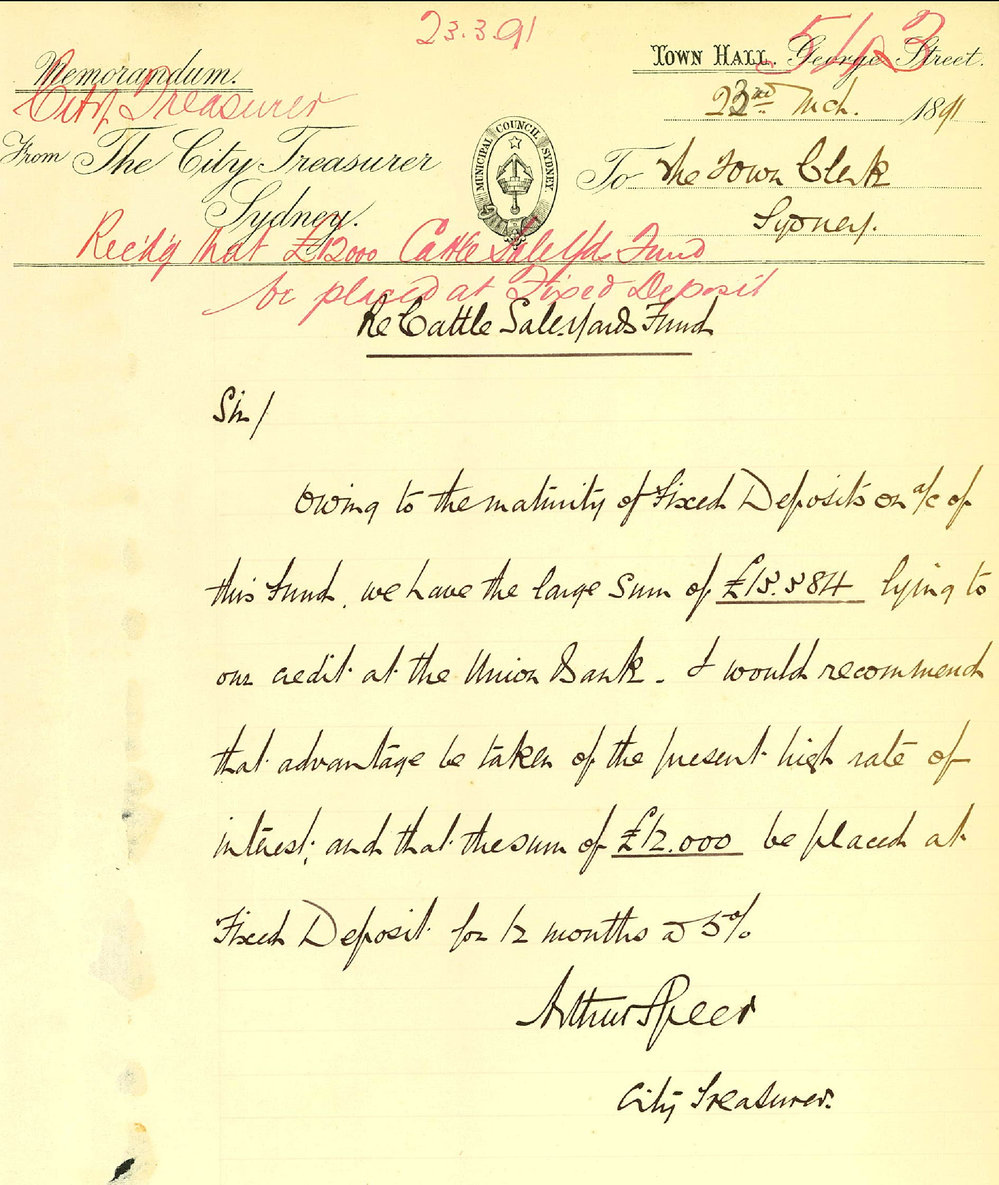 23.3.91
51/3
Memorandum.
TOWN HALL. George Street.
City Treasurer
23rd Mch. 1891
From The City Treasurer
Sydney.
MUNICIPAL COUNCIL SYDNEY.
To The Town Clerk
Sydney.
Rec'd'g that £12000 Cattle Sale Yds Fund
be placed at Fixed Deposit
Re Cattle Saleyards Fund
Sir/
Owing to the maturity of Fixed Deposits on a/c of
this Fund, we have the large sum of £15.584 lying to
our credit at the Union Bank. I would recommend
that advantage be taken of the present high rate of
interest; and that the sum of £12.000 be placed at
Fixed Deposit for 12 months @ 5%
Arthur Speer
City Treasurer.